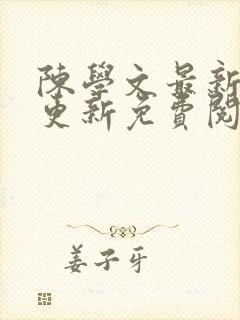 陳學文最新
更新免費閱
姜子牙